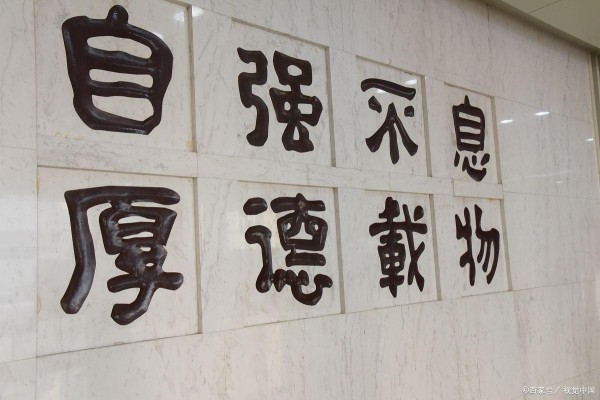 自强不息
厚德載物
©百家号／视觉中国